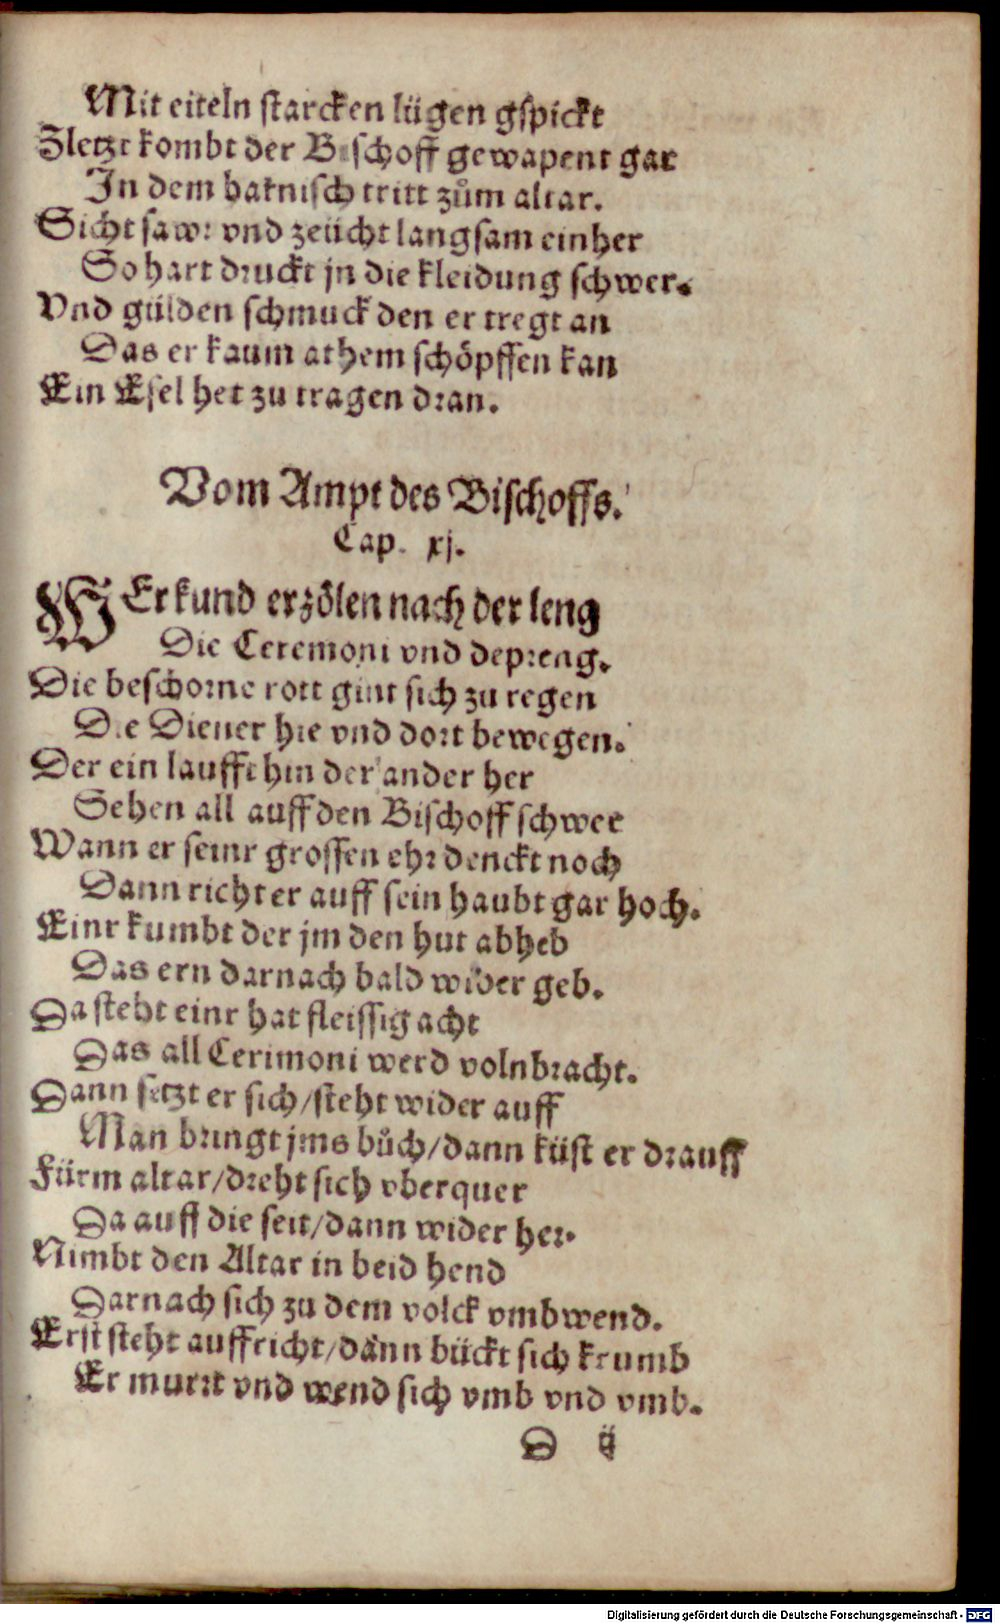 Mit eiteln starcken lügen gspickt
Zletzt kombt der Bischoff gewapent gar
In dem harnisch tritt zům altar.
Sicht sawr vnd zeücht langsam einher
So hart druckt jn die kleidung schwer.
Vnd gülden schmuck den er tregt an
Das er kaum athem schöpffen kan
Ein Esel het zu tragen dran.
Vom Ampt des Bischoffs.
Cap. xj.
WEr kund erzölen nach der leng
Die Ceremoni vnd depreng.
Die beschorne rott gint sich zu regen
Die Diener hie vnd dort bewegen.
Der ein laufft hin der ander her
Sehen all auff den Bischoff schwer
Wann er seinr grossen ehr denckt noch
Dann richt er auff sein haubt gar hoch.
Einr kumbt der jm den hut abheb
Das ern darnach bald wider geb.
Da steht einr hat fleissig acht
Das all Cerimoni werd volnbracht.
Dann setzt er sich/steht wider auff
Man bringt jms bůch/dann küst er drauff
Fürm altar/dreht sich vberquer
Da auff die seit/dann wider her.
Nimbt den Altar in beid hend
Darnach sich zu dem volck vmbwend.
Erst steht auffricht/dann bückt sich krumb
Er murrt vnd wend sich vmb vnd vmb.
D ij
Digitalisierung gefördert durch die Deutsche Forschungsgemeinschaft - DFG